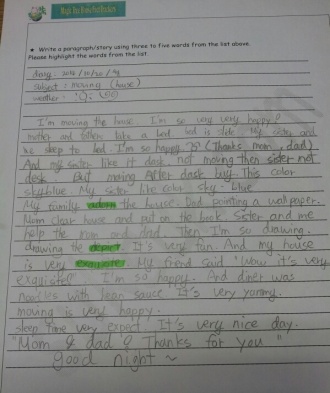 Magic Tree House Vocabulary
★ Write a paragraph/story using three to five words from the list above.
Please highlight the words from the list.
day: 2018/10/20
subject: moving (house)
weather:
I'm moving the house. I'm so very very happy!
mother and father take a bed. bed is slide. My sister and
me sleep to bed. I'm so happy. (Thanks mom, dad)
And my sister like it dask. not moving then sister not
desk. But moving After dask buy. This color
skyblue. My sister like color sky-blue
My family adorn the house. Dad pointing a wall paper.
Mom clear house and put on the book. Sister and me
help the mom and dad. Then I'm so drawing.
drawing the depict. It's very fun. And my house
is very exquisite. My friend said "Wow it's very
exquisite". I'm so happy. And diner was
noodles with bean sauce It's very yummy.
moving is very happy.
sleep time very expect. It's very nice day.
"Mom & dad ? Thanks for you"
Good night ~